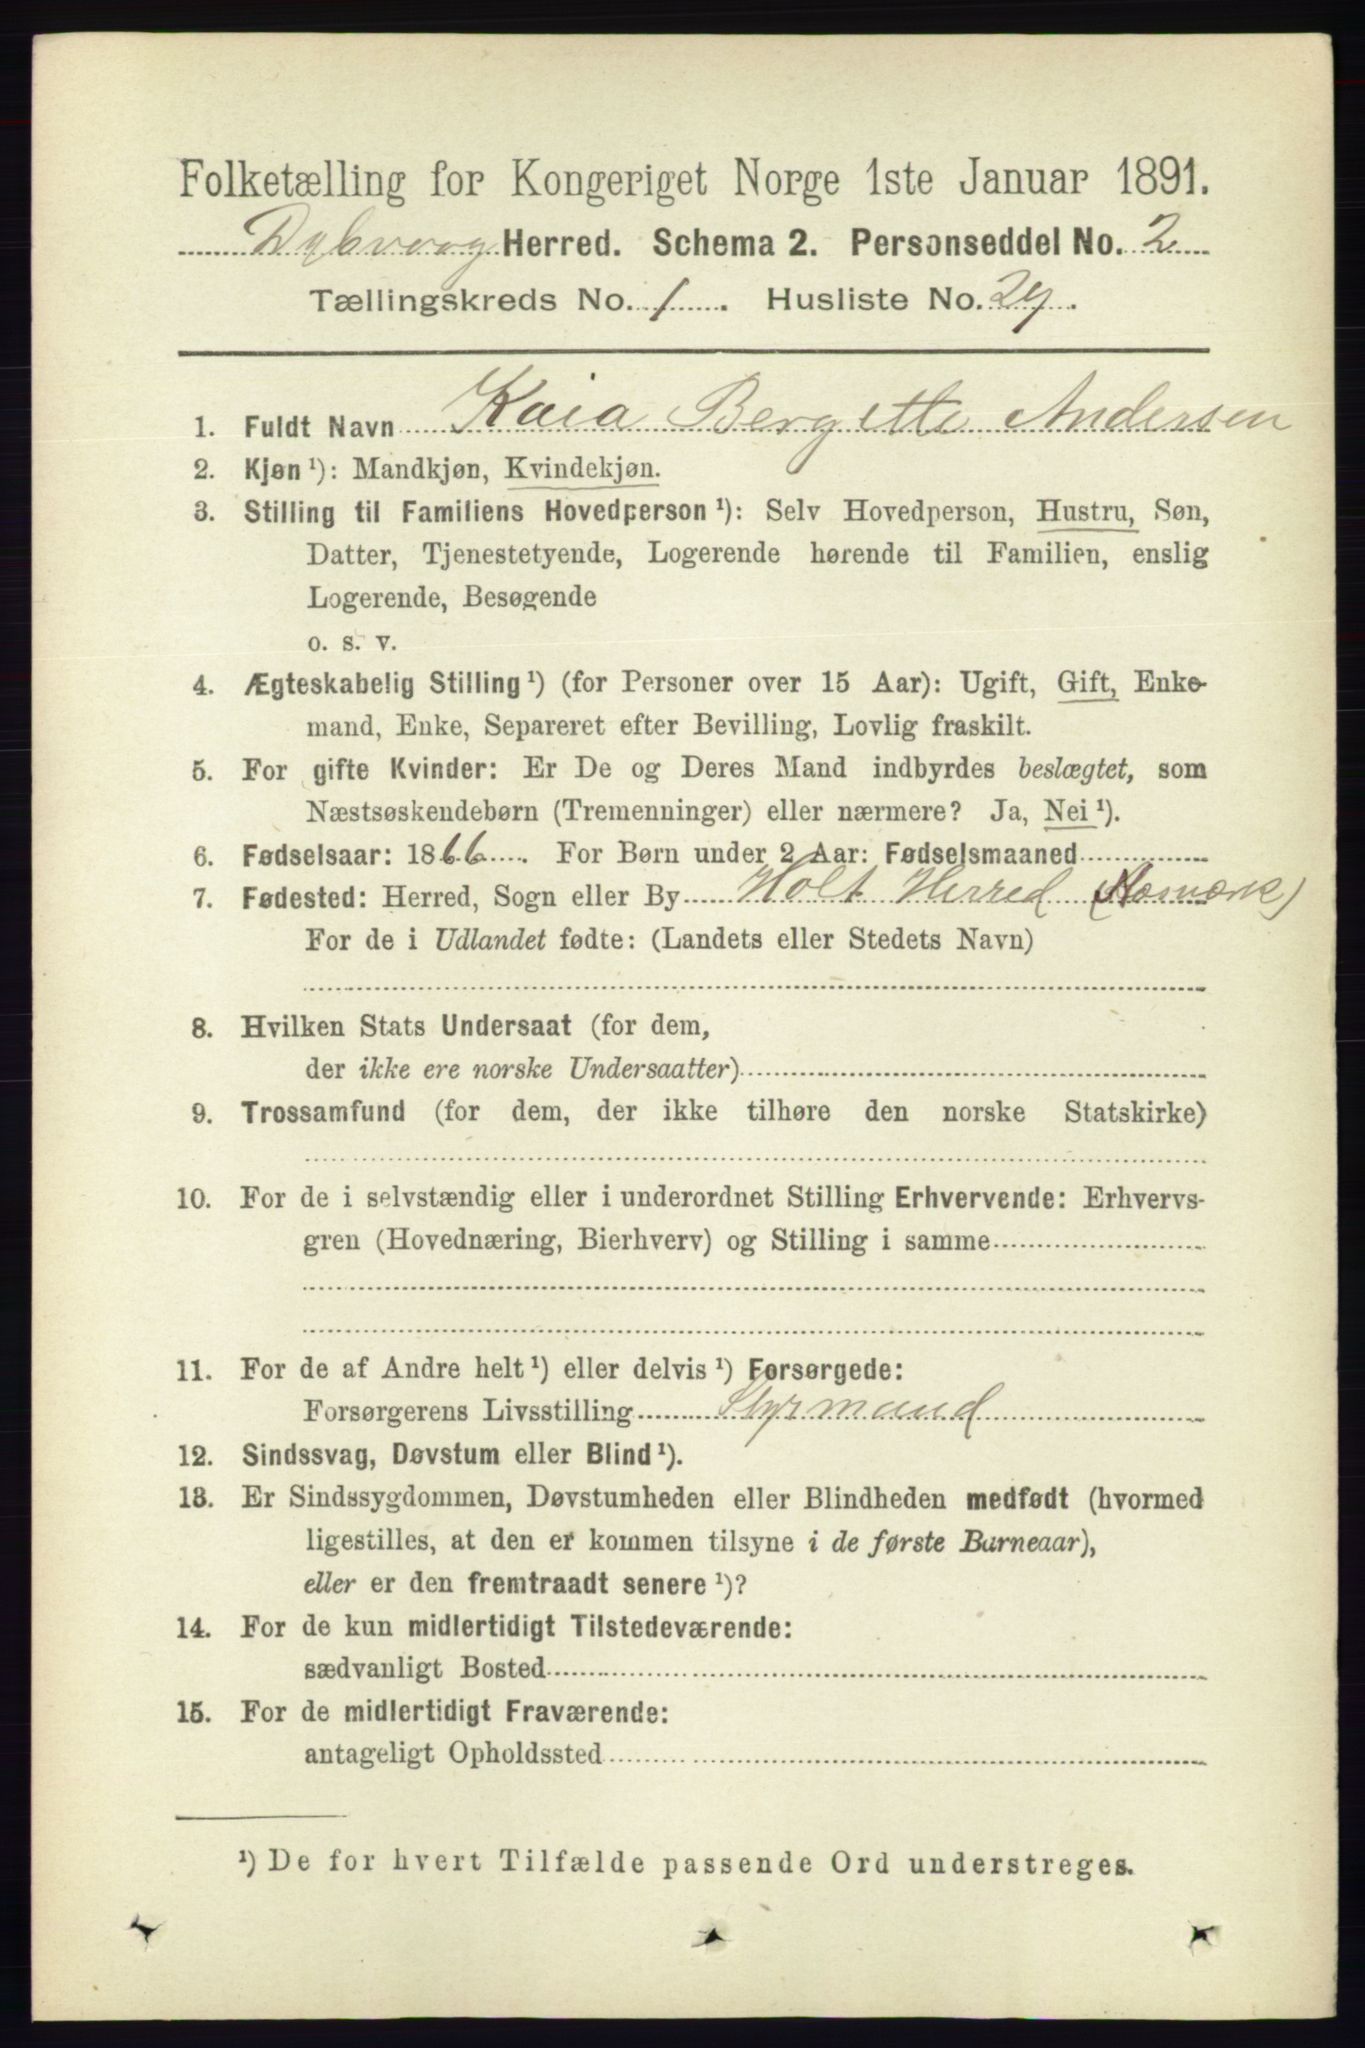 Folketælling for Kongeriget Norge 1ste Januar 1891.
Dybvaag Herred. Schema 2. Personseddel No. 2
Tællingskreds No. 1. Husliste No. 29.
1. Fuldt Navn Kaia Bergitte Andersen
2. Kjøn ¹): Mandkjøn, Kvindekjøn.
3. Stilling til Familiens Hovedperson ¹): Selv Hovedperson, Hustru, Søn,
Datter, Tjenestetyende, Logerende hørende til Familien, enslig
Logerende, Besøgende
o. s. v.
4. Ægteskabelig Stilling ¹) (for Personer over 15 Aar): Ugift, Gift, Enke-
mand, Enke, Separeret efter Bevilling, Lovlig fraskilt.
5. For gifte Kvinder: Er De og Deres Mand indbyrdes beslægtet, som
Næstsøskendebørn (Tremenninger) eller nærmere? Ja, Nei ¹).
6. Fødselsaar: 1866. For Børn under 2 Aar: Fødselsmaaned
7. Fødested: Herred, Sogn eller By Holt Herred
For de i Udlandet fødte: (Landets eller Stedets Navn)
8. Hvilken Stats Undersaat (for dem,
der ikke ere norske Undersaatter)
9. Trossamfund (for dem, der ikke tilhøre den norske Statskirke)
10. For de i selvstændig eller i underordnet Stilling Erhvervende: Erhvervs-
gren (Hovednæring, Bierhverv) og Stilling i samme
11. For de af Andre helt ¹) eller delvis ¹) Forsørgede:
Forsørgerens Livsstilling Styrmand
12. Sindssvag, Døvstum eller Blind ¹).
13. Er Sindssygdommen, Døvstumheden eller Blindheden medfødt (hvormed
ligestilles, at den er kommen tilsyne i de første Barneaar),
eller er den fremtraadt senere ¹)?
14. For de kun midlertidigt Tilstedeværende:
sædvanligt Bosted
15. For de midlertidigt Fraværende:
antageligt Opholdssted
¹) De for hvert Tilfælde passende Ord understreges.